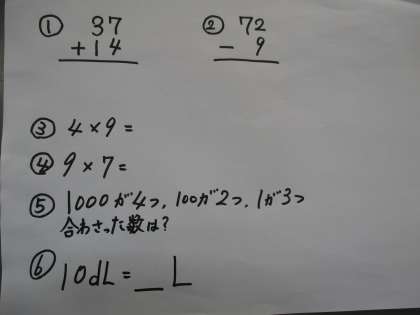 ① 37 ② 72
+14 − 9
③ 4×9=
④ 9×7=
⑤ 1000が4つ, 100が2つ, 1が3つ
合わさった数は?
⑥ 10dL=__L